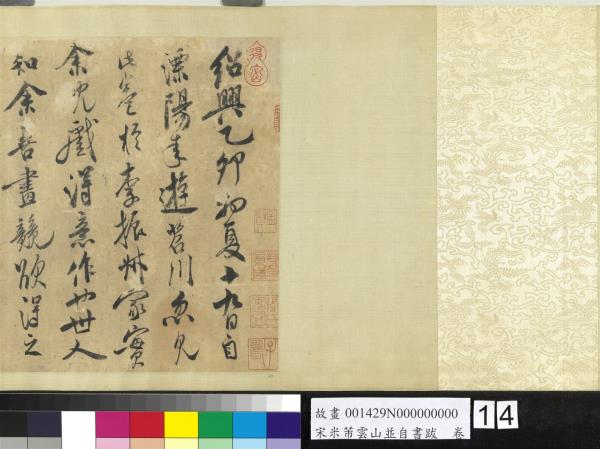 紹興乙卯初夏十九日自
溧陽來遊苕川忽見
此卷於李振叔家實
余兒戲得意作也世人
知余善畫競欲得之
故畫 001429N000000000
宋米芾雲山並自書跋 卷
14